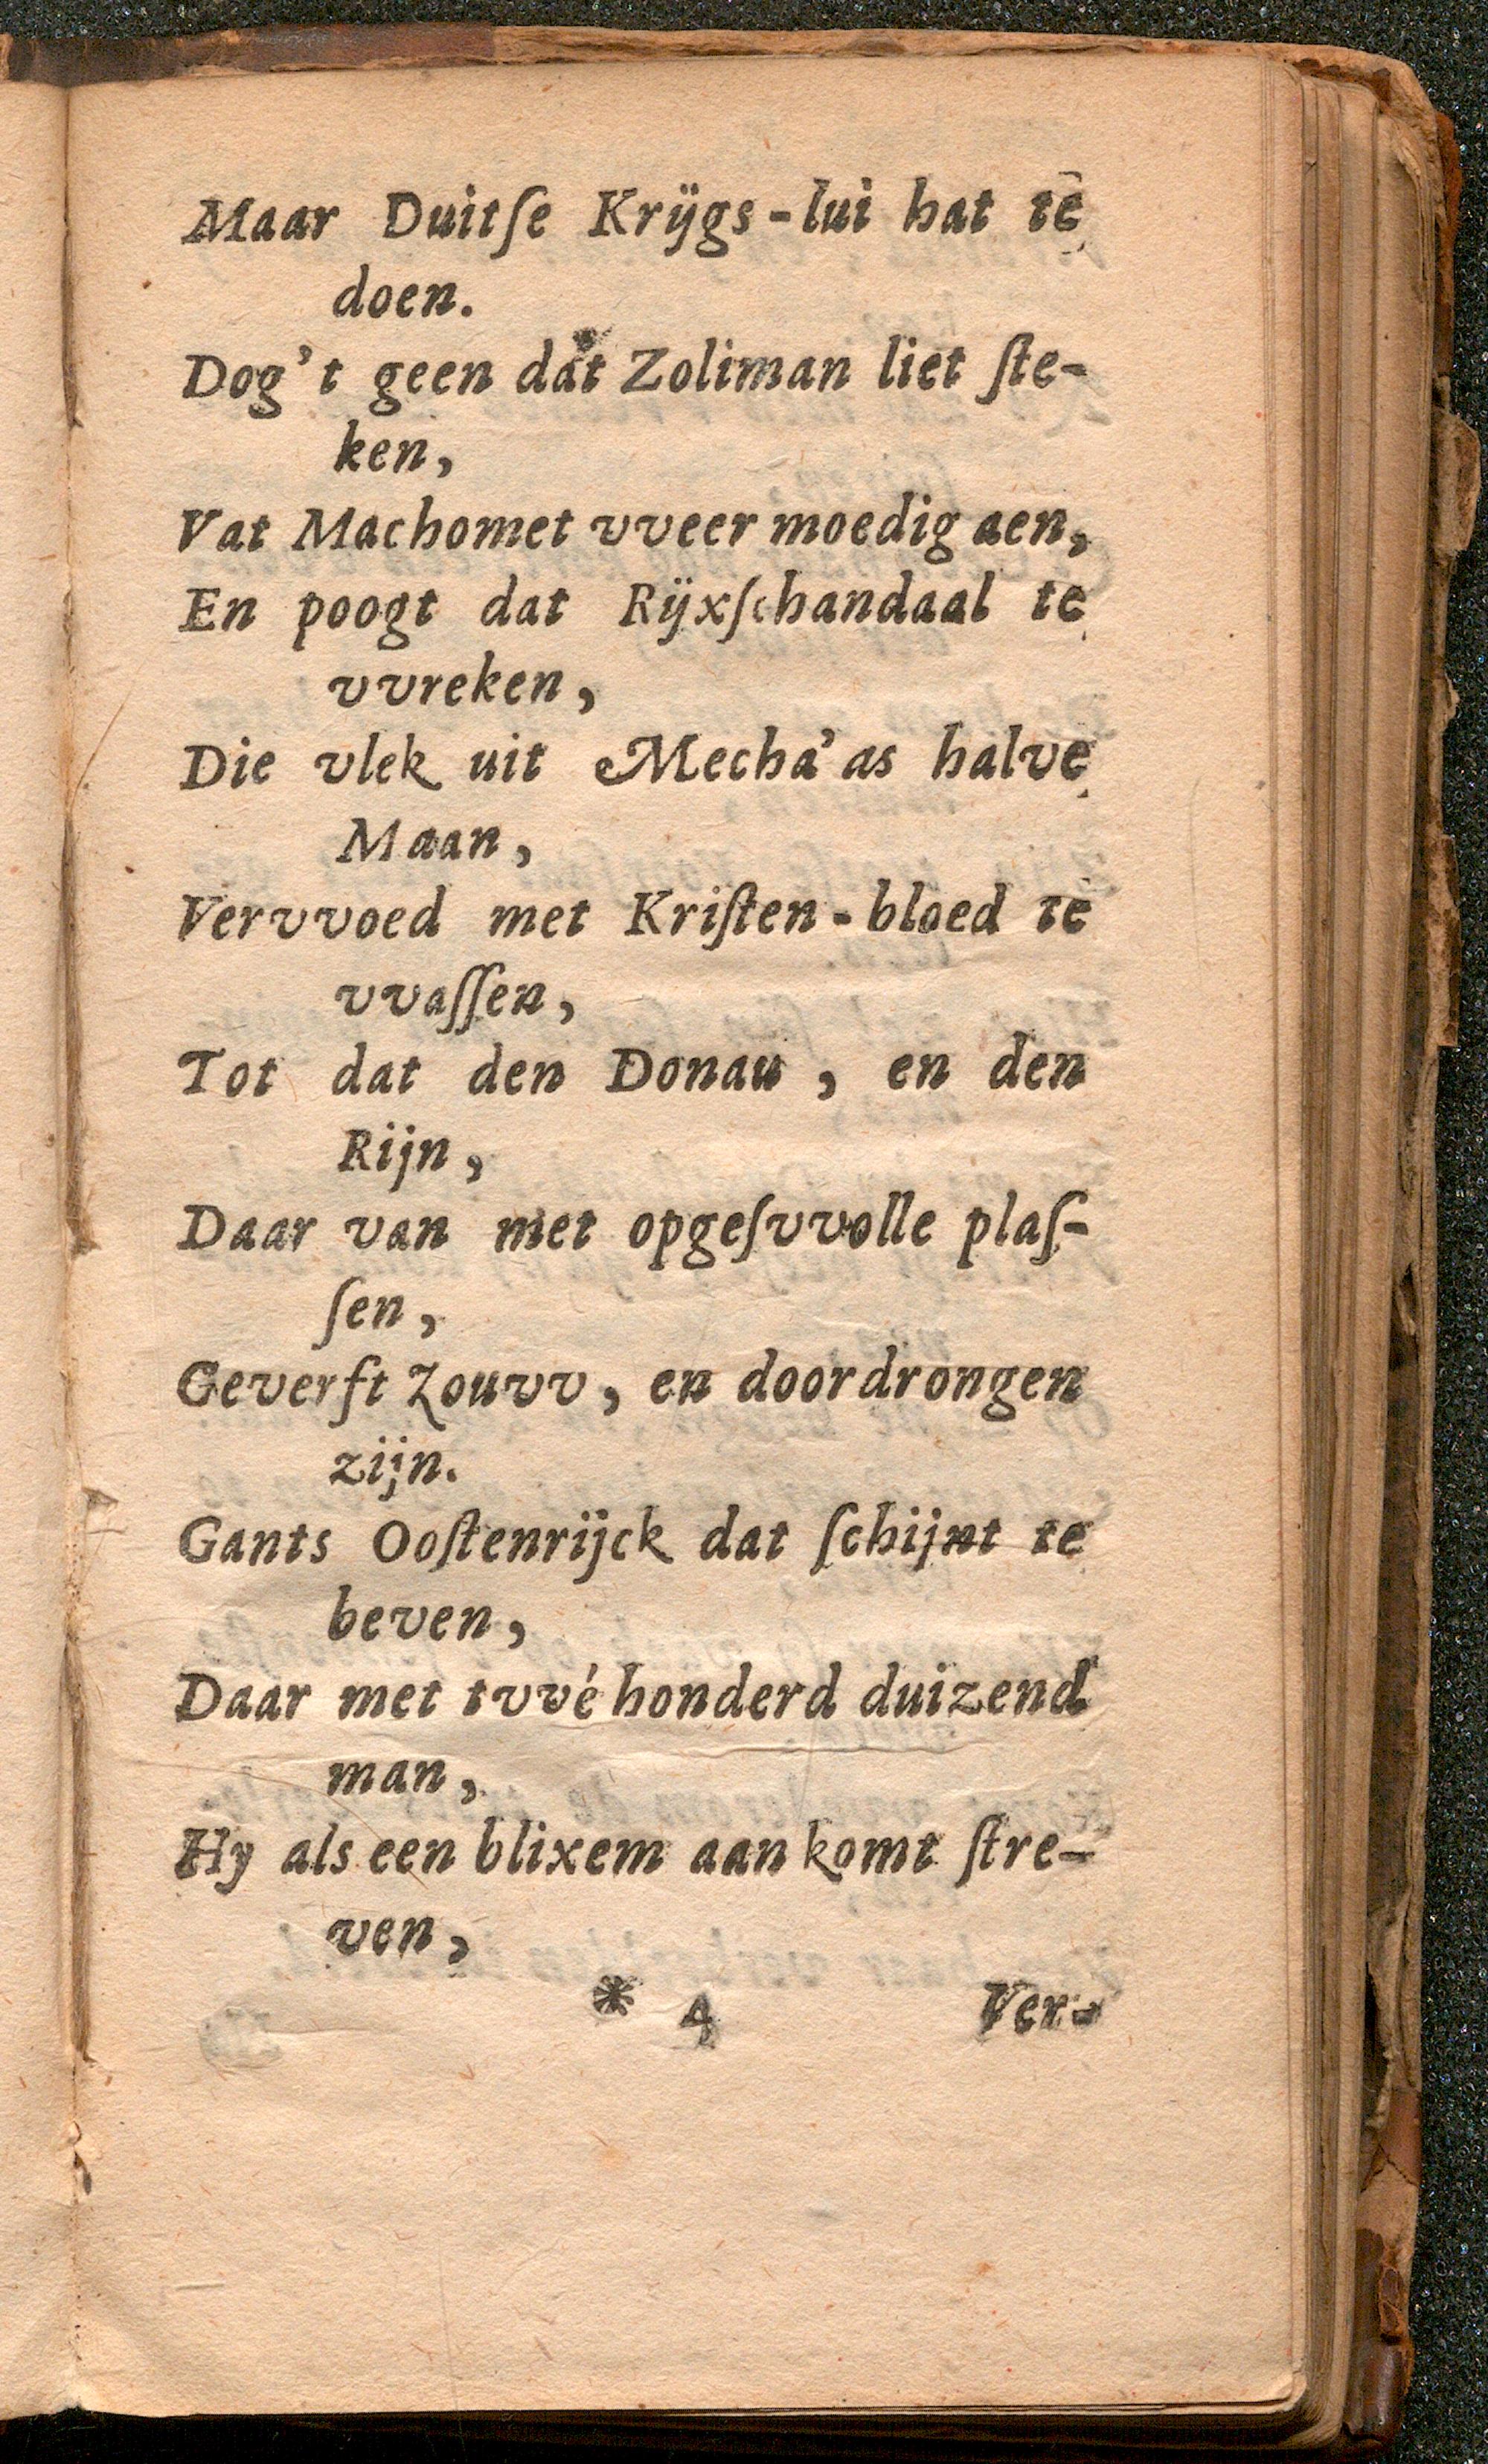 Maar Duitſe Krÿgs-lui hat te
doen.
Dog't geen dat Zoliman liet ſte-
ken,
Vat Machomet vveer moedig aen,
En poogt dat Rÿxſchandaal te
vvreken,
Die vlek uit Mecha'as halve
Maan,
Vervvoed met Kriſten-bloed te
vvaſſen,
Tot dat den Donau, en den
Rijn,
Daar van met opgeſvvolle plaſ-
ſen,
Geverft Zouvv, en doordrongen
zijn.
Gants Ooſtenrijck dat ſchijnt te
beven,
Daar met tvvé honderd duizend
man,
Hy als een blixem aan komt ſtre-
ven,
* 4 Ver-